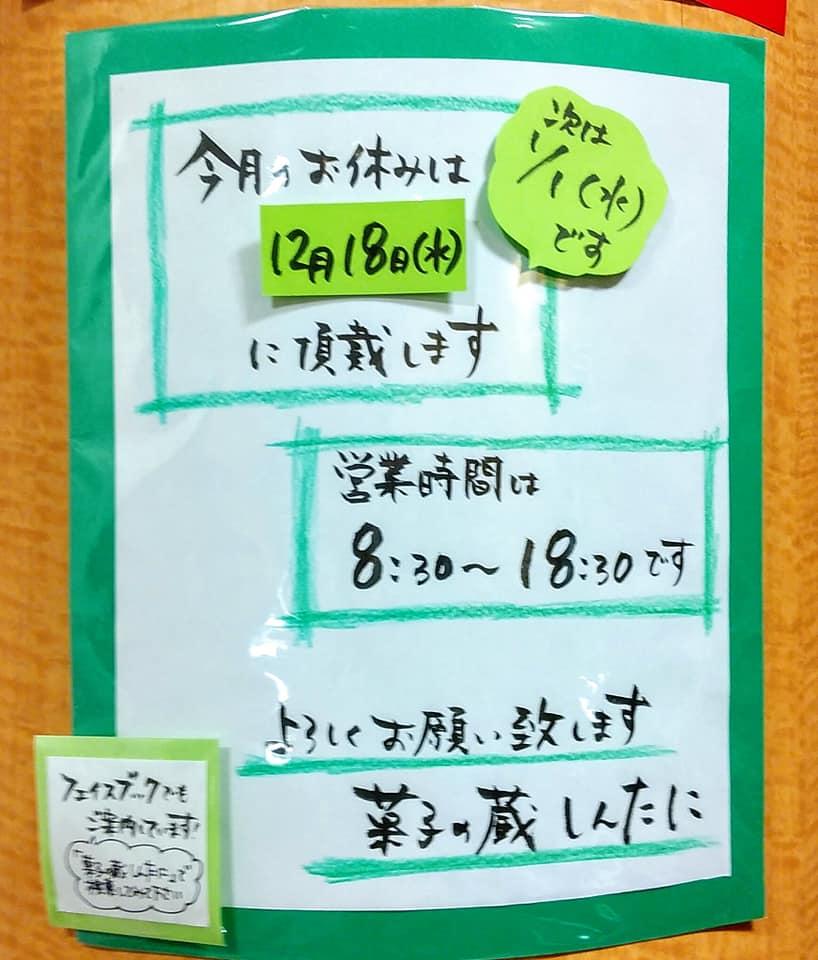 今月のお休みは
12月18日(水)
に頂戴します
次は
1/1(水)
です
営業時間は
8:30～18:30です
よろしくお願い致します
菓子の蔵 しんたに
フェイスブックでも
ご案内しています!
「菓子の蔵しんたに」で
検索してみて下さい